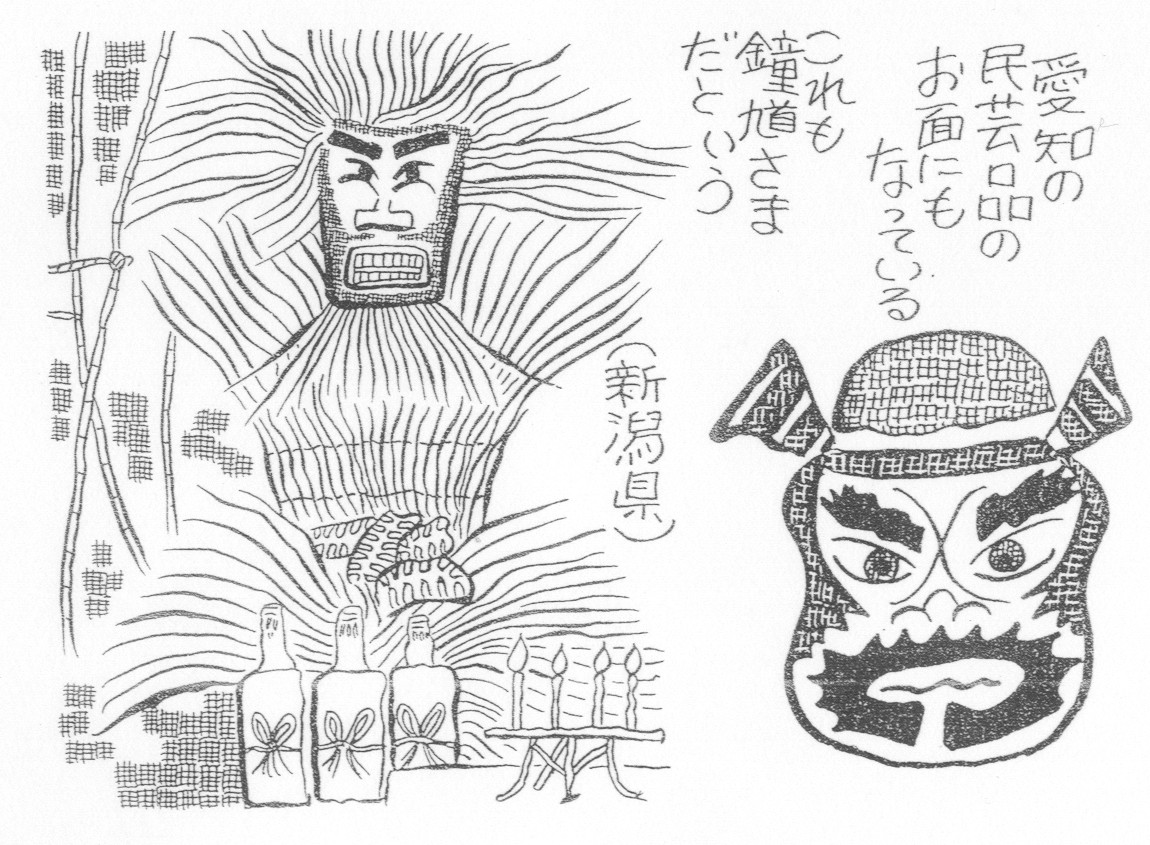 愛知の
民芸品の
お面にも
なっている
これも
鐘馗さま
だという
(新潟県)